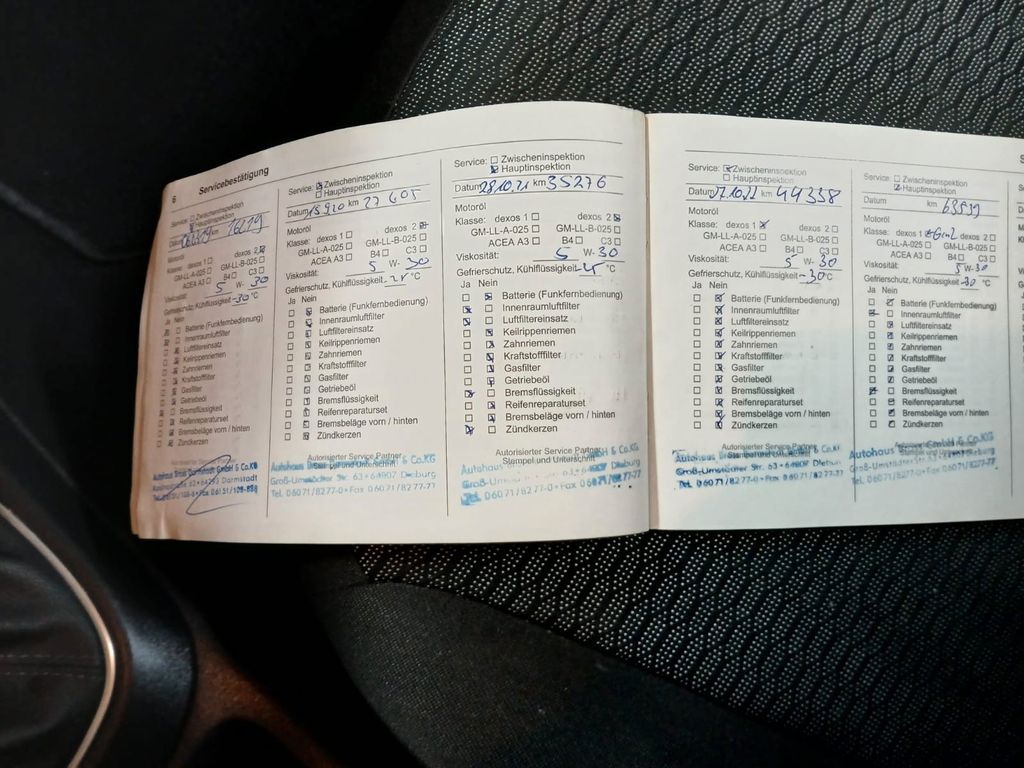 6
Servicebestätigung
Service: Zwischeninspektion
Hauptinspektion
Datum km 16219
Motoröl
Klasse: dexos 1 dexos 2
GM-LL-A-025 GM-LL-B-025
ACEA A3 B4 C3
Viskosität: 5 W- 30
Gefrierschutz, Kühlflüssigkeit -30 °C
Ja Nein
Batterie (Funkfernbedienung)
Innenraumluftfilter
Luftfiltereinsatz
Keilrippenriemen
Zahnriemen
Kraftstofffilter
Gasfilter
Getriebeöl
Bremsflüssigkeit
Reifenreparaturset
Bremsbeläge vorn / hinten
Zündkerzen
Autohaus Darmstadt GmbH & Co.KG
64293 Darmstadt
Service: Zwischeninspektion
Hauptinspektion
Datum 15 9 20 km 27 605
Motoröl
Klasse: dexos 1 dexos 2
GM-LL-A-025 GM-LL-B-025
ACEA A3 B4 C3
Viskosität: 5 W- 30
Gefrierschutz, Kühlflüssigkeit °C
Ja Nein
Batterie (Funkfernbedienung)
Innenraumluftfilter
Luftfiltereinsatz
Keilrippenriemen
Zahnriemen
Kraftstofffilter
Gasfilter
Getriebeöl
Bremsflüssigkeit
Reifenreparaturset
Bremsbeläge vorn / hinten
Zündkerzen
Autorisierter Service Partner
Stempel und Unterschrift
Autohaus & Co.KG
Groß-Umstädter Str. 63 • 64807 Dieburg
Tel. 06071/8277-0 • Fax 06071/8277-77
Service: Zwischeninspektion
Hauptinspektion
Datum 28.10.21 km 35276
Motoröl
Klasse: dexos 1 dexos 2
GM-LL-A-025 GM-LL-B-025
ACEA A3 B4 C3
Viskosität: 5 W- 30
Gefrierschutz, Kühlflüssigkeit °C
Ja Nein
Batterie (Funkfernbedienung)
Innenraumluftfilter
Luftfiltereinsatz
Keilrippenriemen
Zahnriemen
Kraftstofffilter
Gasfilter
Getriebeöl
Bremsflüssigkeit
Reifenreparaturset
Bremsbeläge vorn / hinten
Zündkerzen
Autorisierter Service Partner
Stempel und Unterschrift
Autohaus & Co.KG
Dieburg
Tel. 06071/8277-0 • Fax 06071/8277-77
Service: Zwischeninspektion
Hauptinspektion
Datum 17.10.22 km 44358
Motoröl
Klasse: dexos 1 dexos 2
GM-LL-A-025 GM-LL-B-025
ACEA A3 B4 C3
Viskosität: 5 W- 30
Gefrierschutz, Kühlflüssigkeit -30 °C
Ja Nein
Batterie (Funkfernbedienung)
Innenraumluftfilter
Luftfiltereinsatz
Keilrippenriemen
Zahnriemen
Kraftstofffilter
Gasfilter
Getriebeöl
Bremsflüssigkeit
Reifenreparaturset
Bremsbeläge vorn / hinten
Zündkerzen
Autorisierter Service Partner
Stempel und Unterschrift
Autohaus & Co.KG
Groß-Umstädter Str. 63 • 64807 Dieburg
Tel. 06071/8277-0 • Fax 06071/8277-77
Service: Zwischeninspektion
Hauptinspektion
Datum km 63539
Motoröl
Klasse: dexos 1 Gen2 dexos 2
GM-LL-A-025 GM-LL-B-025
ACEA A3 B4 C3
Viskosität: 5 W- 30
Gefrierschutz, Kühlflüssigkeit -30 °C
Ja Nein
Batterie (Funkfernbedienung)
Innenraumluftfilter
Luftfiltereinsatz
Keilrippenriemen
Zahnriemen
Kraftstofffilter
Gasfilter
Getriebeöl
Bremsflüssigkeit
Reifenreparaturset
Bremsbeläge vorn / hinten
Zündkerzen
Autohaus GmbH & Co.KG
Tel. 06071/8277-0 • Fax 06071/8277-77